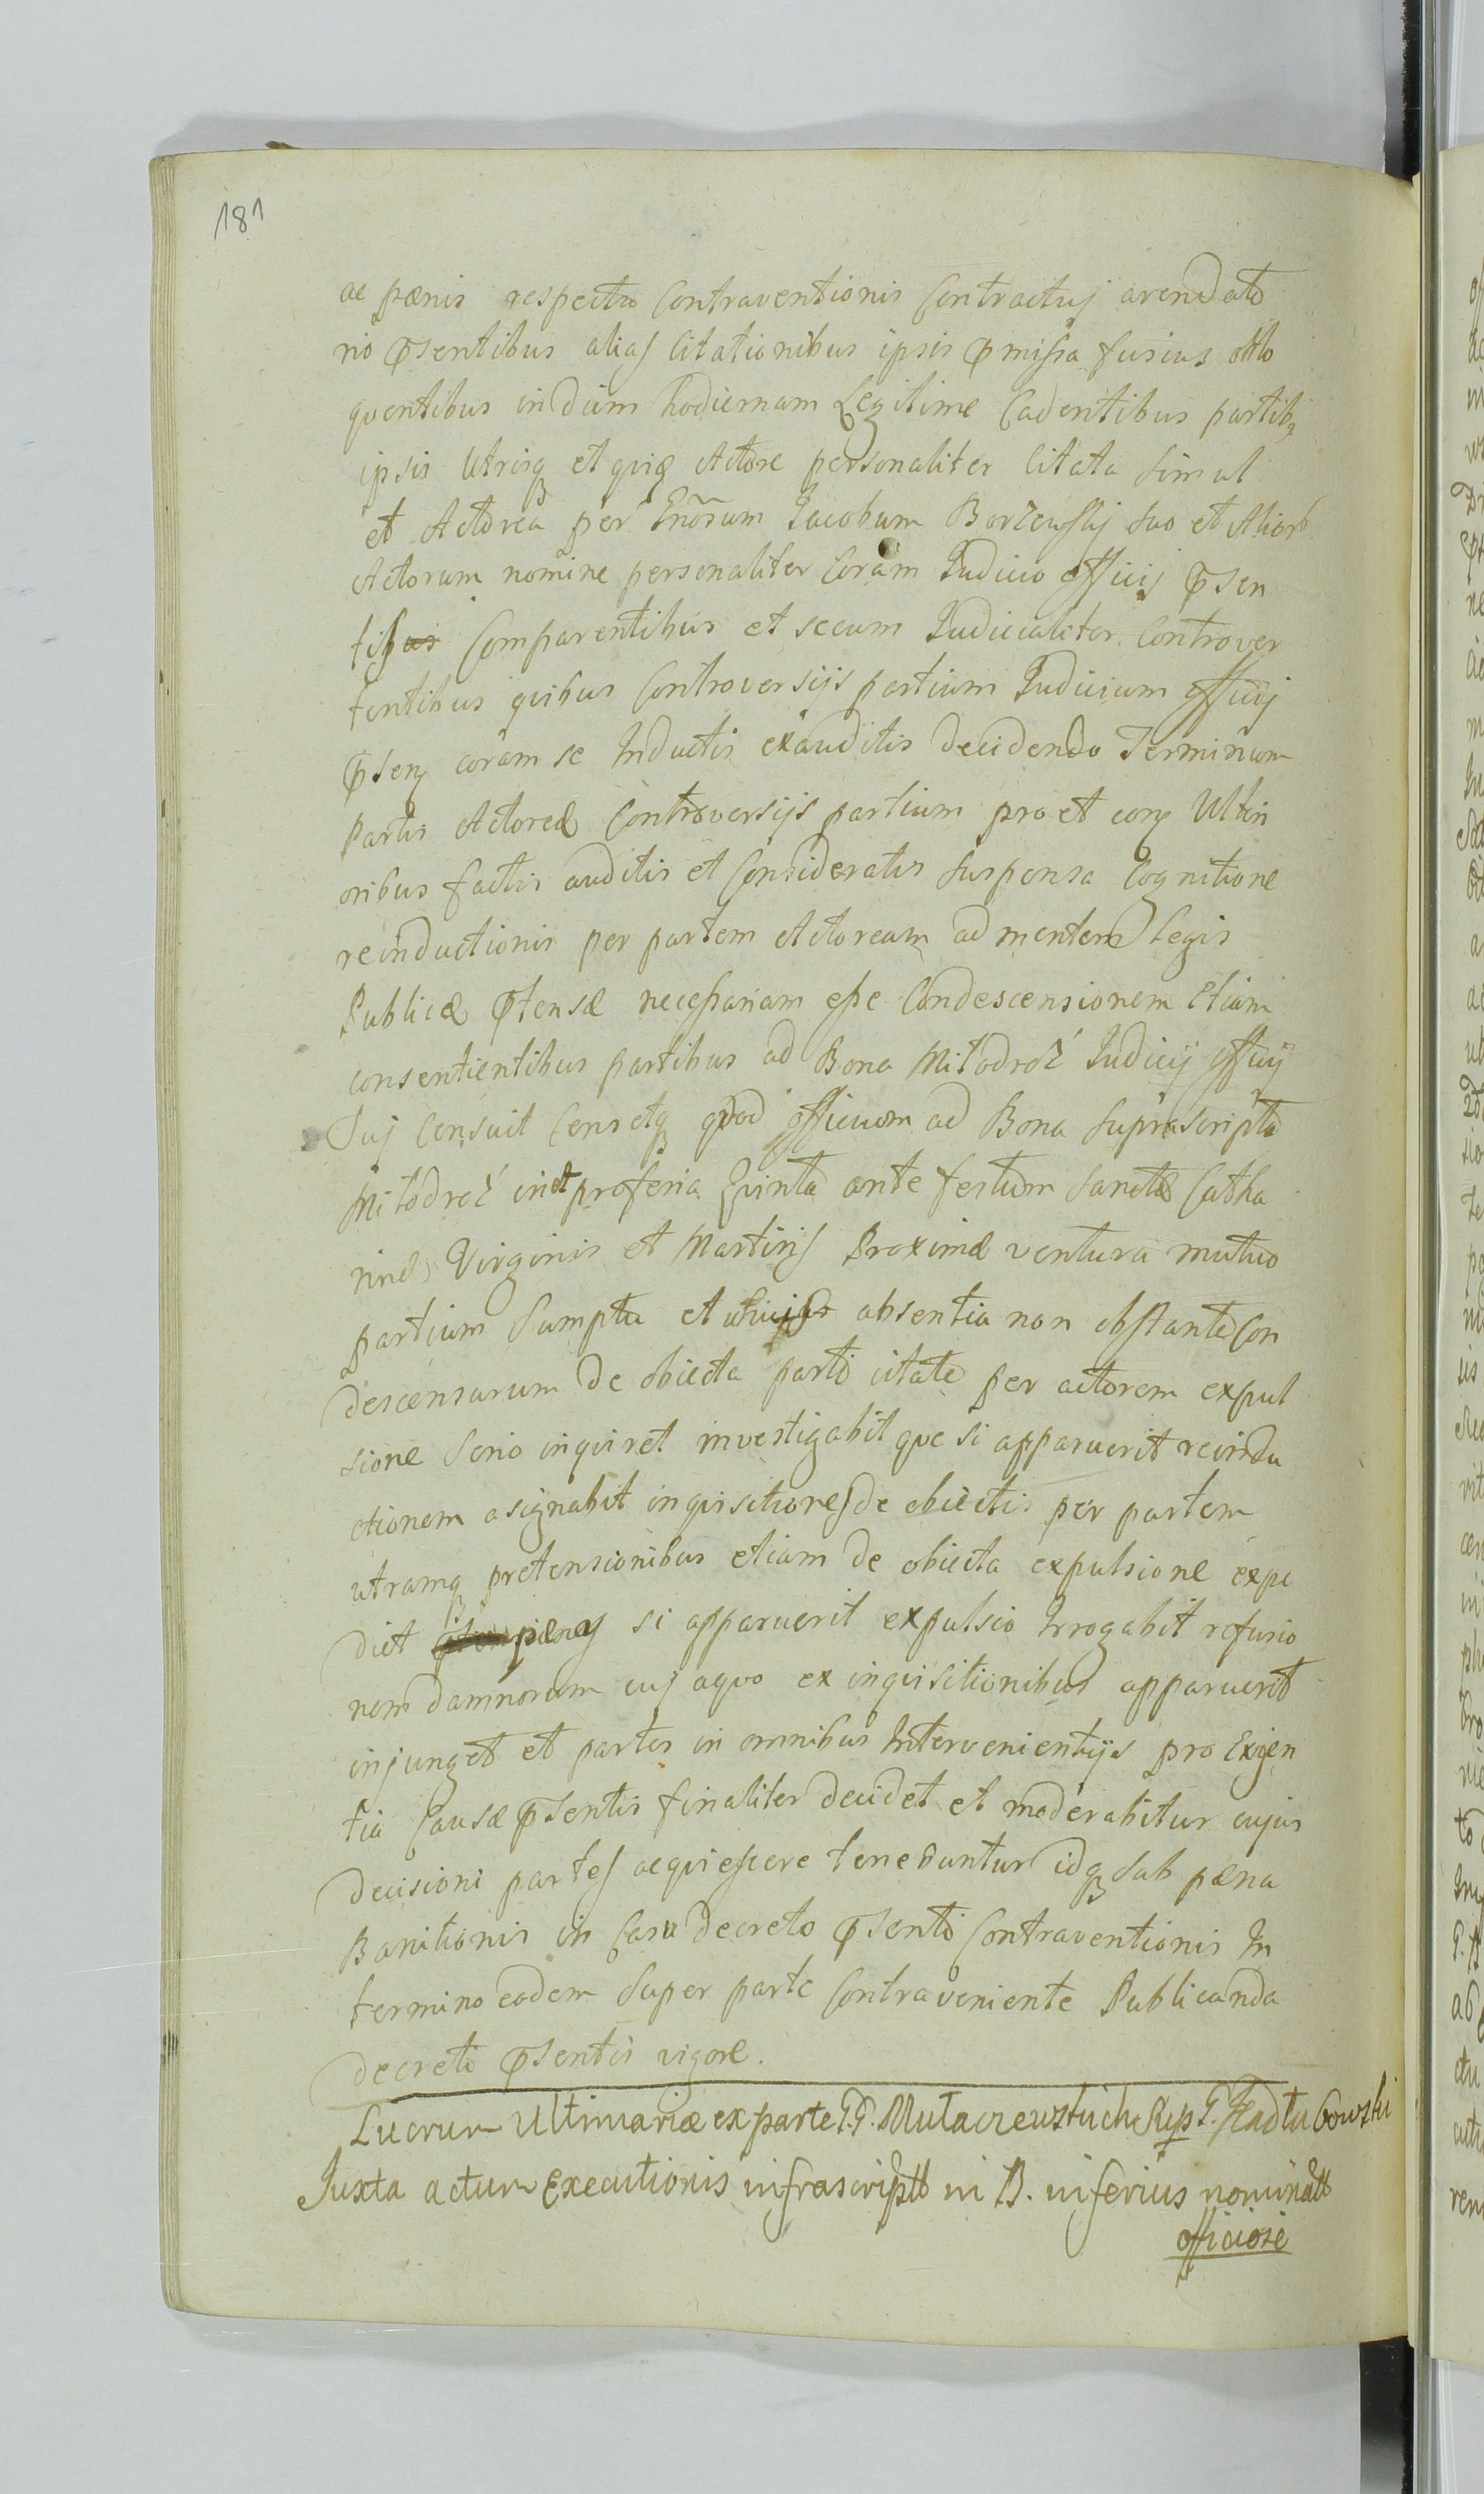 181
ac pænis respectu Contraventionis Contractuj arendato
rio p̄sentibus alias Citationibus ipsis p̄missa fusius
quentibus in diem hodiernam Legitime Cadentibus partibq
ipsis Utrisq et Actore personaliter Citata Simul
et Actorea per Gn̄osum Jacobum Borzewskj suo et Alior
Actorum nomine personaliter Coram Judicio officij p̄sen
tibus Comparentibus et secum Judicialiter Controver
tentibus quibus Controversijs partium Judicium officij
p̄sens coram se Inductis exauditis decidendo Terminum
Partis Actoreæ Controversijs partium pro et con Ulteri
oribus factis auditis et Consideratis Suspensa Cognitione
reinductionis per partem Actoream ad mentem Legis
Publicæ p̄tensæ necessariam esse Condescensionem Etiam
consentientibus partibus ad Bona Miłodroż Judicij officij
Suj Censuit Censetq quod officium ad Bona Suprascripta
Miłodroż in et pro feria Quinta ante festum Sanctæ Catha
rinæ Virginis et Martiris Proxime ventura mutuo
partium Sumptu et absentia non obstante Con
descensurum de obiecta parti citatæ per actorem expul
sione Serio inquiret investigabit que si apparuerit reindu
ctionem asignabit inquisitiones de obiectis per partem
utramq pretensionibus etiam de obiecta expulsione expe
diet pænas si apparuerit expulsio Irrogabit refusio
nem damnorum cuj aquo ex inquisitionibus apparuerit
injunget et partes in omnibus Intervenientijs pro Exigen
tia Causæ p̄sentis finaliter decidet et moderabitur cujus
decisioni partes acquiescere tenebuntur idq Sub pæna
Banitionis in Casu decreto p̄senti Contraventionis In
termino eodem Super parte Contraveniente Publicanda
decreti p̄sentis vigore.
Lucrum Ultimariæ ex parte P.P. Mułaczewskich Rsp P. Jzadłubowski
Juxta actum Executionis infrascripto in B. inferius nominato
officiose